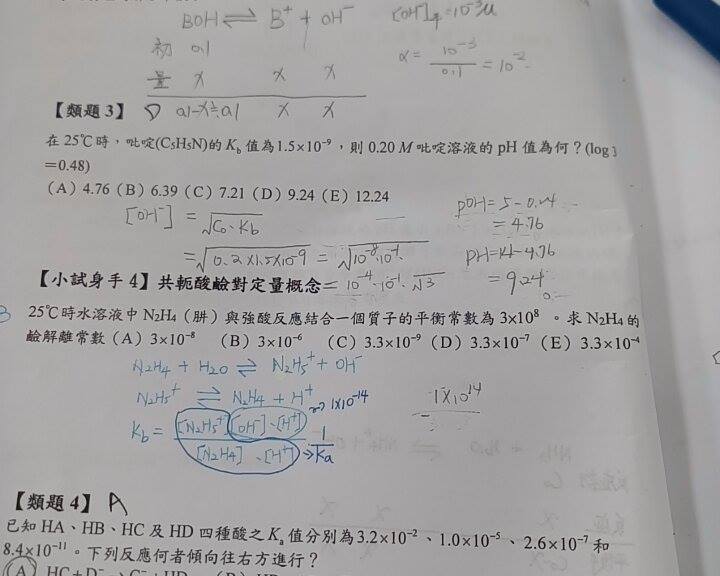 BOH ⇌ B⁺ + OH⁻ [OH⁻]平=10⁻³M
初 0.1 α= 10⁻³/0.1 = 10⁻²
量 x x x
【類題 3】 D 0.1-x≒0.1 x x
在 25℃時,吡啶(C₅H₅N)的 K_b 值為1.5×10⁻⁹,則 0.20 M 吡啶溶液的 pH 值為何?(log 3
=0.48)
(A) 4.76 (B) 6.39 (C) 7.21 (D) 9.24 (E) 12.24
[OH⁻] = √C₀·Kb pOH=5-0.24
=√0.2×1.5×10⁻⁹ = √10⁻⁸·10⁻¹· =4.76
PH=14-4.76
【小試身手 4】共軛酸鹼對定量概念 = 10⁻⁴·10⁻¹·√3 =9.24
3 25℃時水溶液中 N₂H₄(肼)與強酸反應結合一個質子的平衡常數為 3×10⁸。求 N₂H₄ 的
鹼解離常數(A)3×10⁻⁸ (B)3×10⁻⁶ (C)3.3×10⁻⁹ (D)3.3×10⁻⁷ (E)3.3×10⁻⁴
N₂H₄ + H₂O ⇌ N₂H₅⁺ + OH⁻
N₂H₅⁺ ⇌ N₂H₄ + H⁺
→1×10⁻¹⁴ 1×10¹⁴
Kb = [N₂H₅⁺][OH⁻]·[H⁺] / [N₂H₄]·[H⁺] → 1/Ka
【類題 4】 A
已知 HA、HB、HC 及 HD 四種酸之 Kₐ 值分別為3.2×10⁻²、1.0×10⁻⁵、2.6×10⁻⁷ 和
8.4×10⁻¹¹。下列反應何者傾向往右方進行?
(A) HC+D⁻ → C⁻+HD (B)